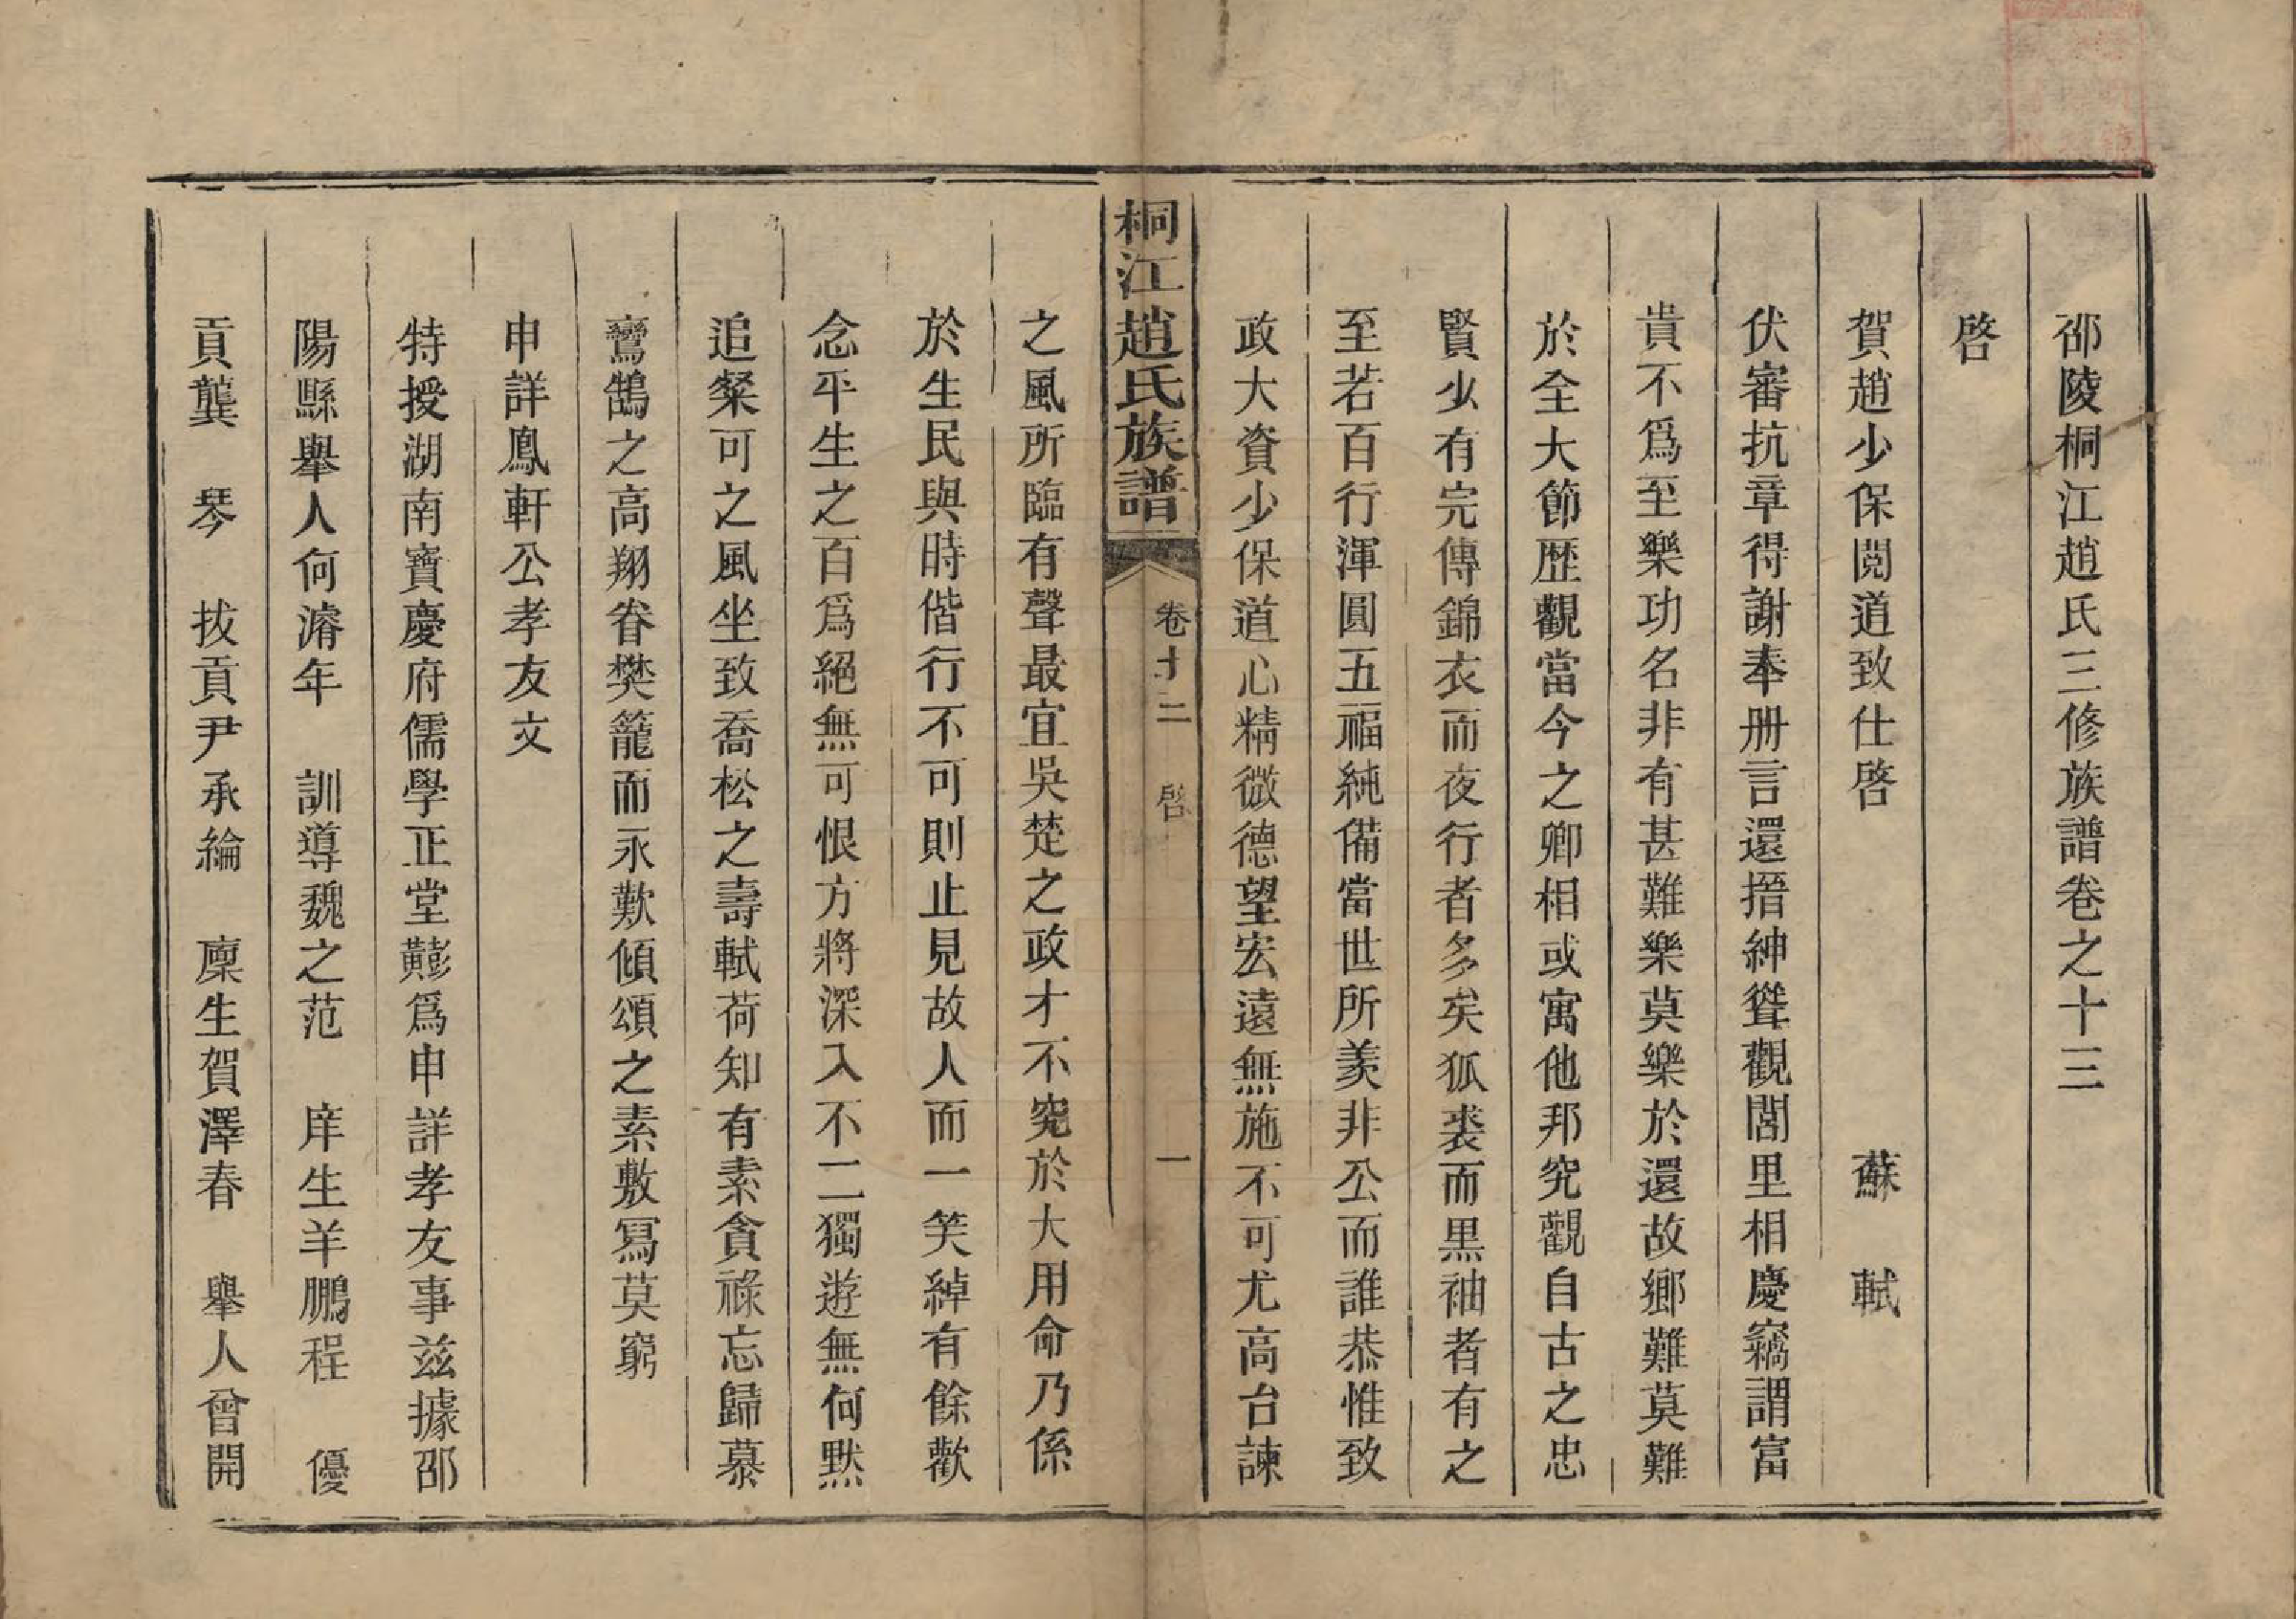 邵陵桐江趙氏三修族譜卷之十三
啓
賀趙少保閱道致仕啓　蘇　軾
伏審抗章得謝奉册言還搢紳聳觀閭里相慶竊謂富
貴不爲至樂功名非有甚難樂莫樂於還故鄉難莫難
於全大節歴觀當今之卿相或寓他邦究觀自古之忠
賢少有完傳錦衣而夜行者多矣狐裘而黒袖者有之
至若百行渾圓五福純備當世所羨非公而誰恭惟致
政大資少保道心精微德望宏遠無施不可尤高台諫
桐江趙氏族譜　卷十二　啓　一
之風所臨有聲最宜吳楚之政才不究於大用命乃係
於生民與時偕行不可則止見故人而一笑綽有餘歡
念平生之百爲絕無可恨方將深入不二獨遊無何默
追粲可之風坐致喬松之壽軾荷知有素貪祿忘歸慕
鸞鵠之高翔眷樊籠而永歎傾頌之素敷寫莫窮
申詳鳳軒公孝友文
特授湖南寶慶府儒學正堂彭爲申詳孝友事兹據邵
陽縣舉人何濬年　訓導魏之范　庠生羊鵬程　優
貢龔　琴　拔貢尹承綸　廩生賀澤春　舉人曾開